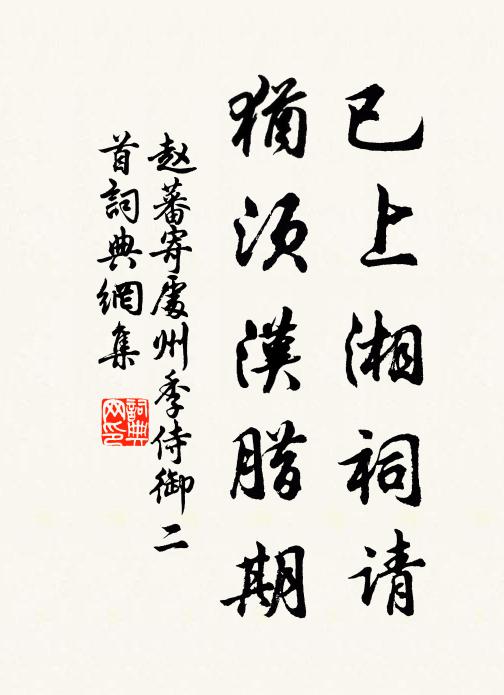 已上湘祠请
犹须汉腊期
赵蕃寄处州季侍御二
首词典網集
詞典
网印